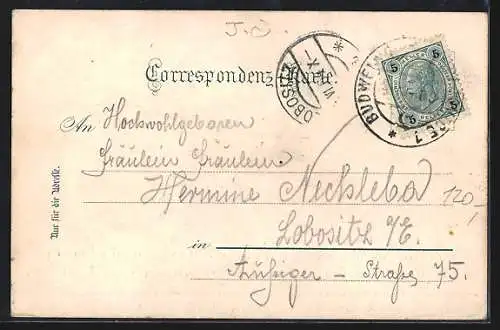 J. O.
Correspondenz-Karte
LOBOSITZ
VI
X
*
BUDWEIS
* 1
5 5
5 5
An Hochwohlgeboren
Fräulein Fräulein
Hermine Nechleba
120-
Lobositz a/E.
in
Außiger - Straße 75.
Nur für die Adresse.